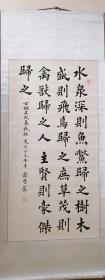 水泉深則魚鱉歸之樹木
盛則飛鳥歸之庶草茂則
禽獸歸之人主賢則豪傑
歸之